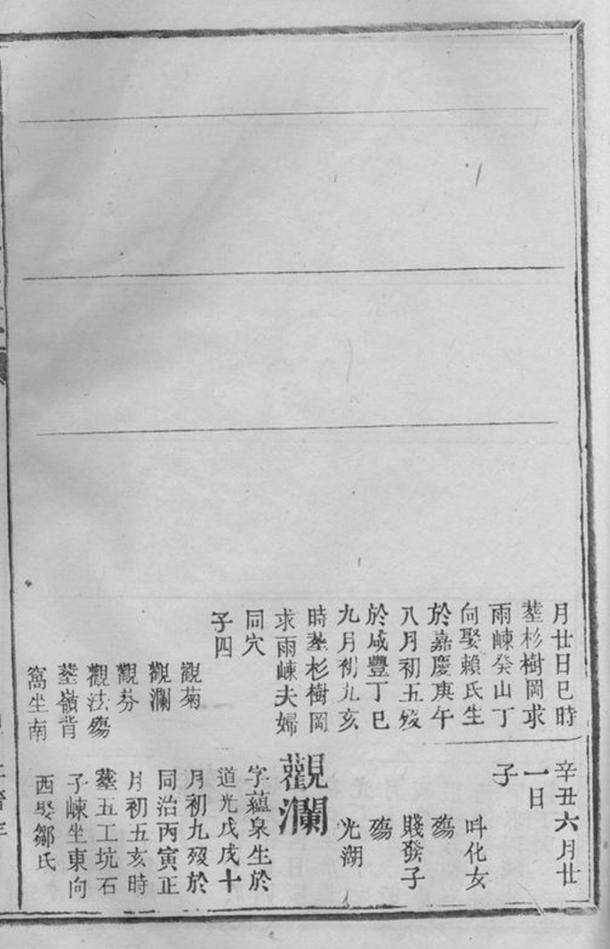 月廿日巳時
塟杉樹岡求
雨崠癸山丁
向娶賴氏生
於嘉慶庚午
八月初五歿
於咸豐丁巳
九月初九亥
時塟杉樹岡
求雨崠夫婦
同穴
子四
觀菊
觀瀾
觀芬
觀法殤
塟嶺背
窩坐南
辛丑六月廿
一日
子
呌化女
殤
賤發子
殤
光湖
觀瀾
字蘊泉生於
道光戊戌十
月初九歿於
同治丙寅正
月初五亥時
塟五工坑石
子崠坐東向
西娶鄒氏